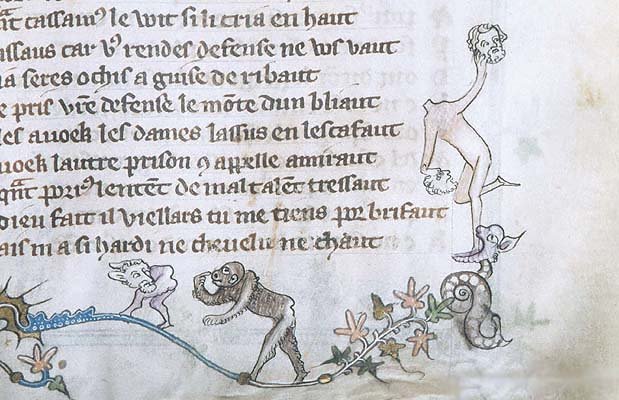 q̄nt cassamꝰ le wit si li cria en haut
assaus car vꝰ rendes defense ne ws vaut
ia seres ochis a guise de ribaut
e pris vr̄e defense le mōte dun bliaut
les auoek les dames lassus en lescafaut
uoek lautre prison ꝯ appelle amiraut
qāt porrꝰ lentēt de mal talēt tressaut
dieu fait il viellars tu me tiens por brifaut
ais ni a si hardi ne cheuelu ne chaut